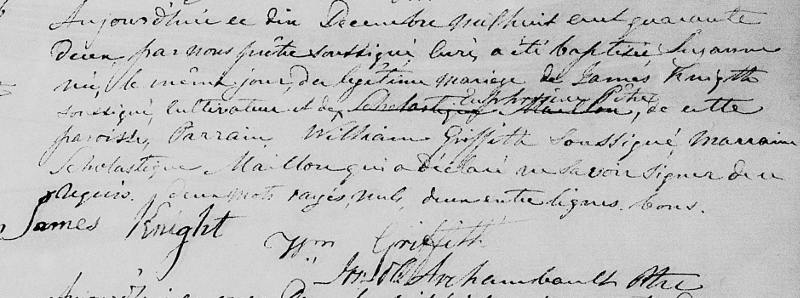 Aujourd'hui ce dix Decembre mil huit cent quarante
deux par nous prêtre soussigné curé, a été baptisée Suzanne
née, le même jour, du légitime mariage de James Knigth
soussigné, Cultivateur et de Scholastique Maillou, Euphrosine Pétre, de cette
paroisse, Parrain, William Griffith soussigné Marraine
Scholastique Maillou qui a déclaré ne savoir signer de ce
requis. deux mots rayés, nuls, deux entre lignes. bons.
James Knight
Wm Griffith
Archambault Ptre